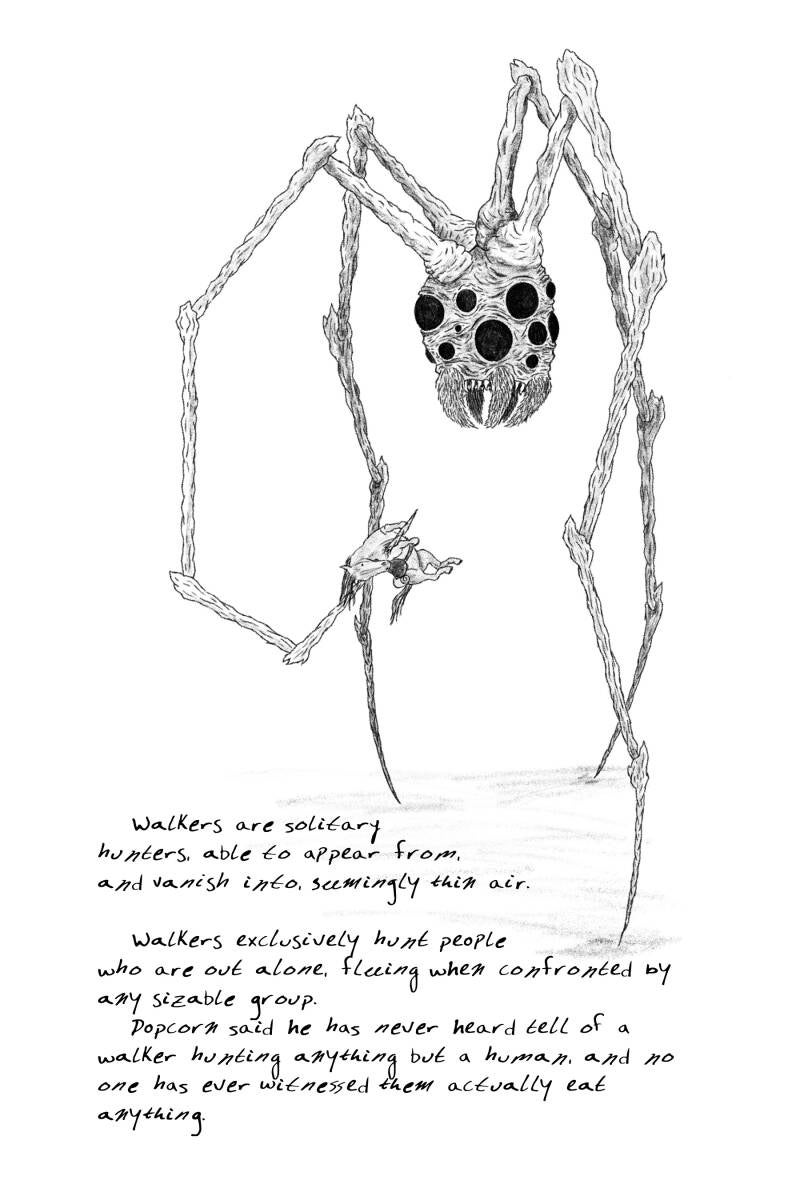 Walkers are solitary
hunters, able to appear from,
and vanish into, seemingly thin air.
Walkers exclusively hunt people
who are out alone, fleeing when confronted by
any sizable group.
Popcorn said he has never heard tell of a
walker hunting anything but a human, and no
one has ever witnessed them actually eat
anything.